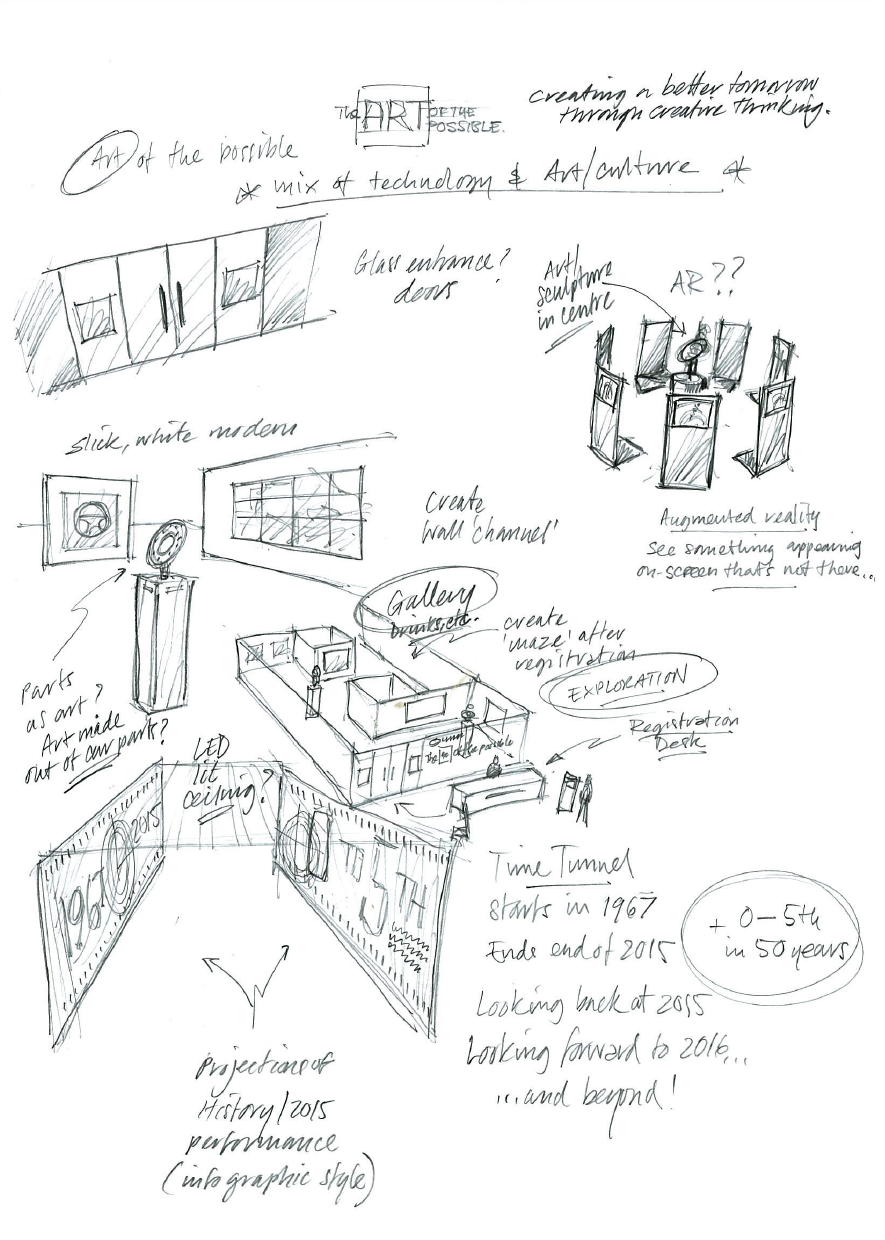 The ART OF THE
POSSIBLE.
creating a better tomorrow
through creative thinking.
Art of the possible
* mix of technology & Art/culture *
Glass entrance?
doors
Art/
sculpture
in centre
AR??
slick, white modern
Create
wall 'channel'
Augmented reality
see something appearing
on-screen that's not there...
Gallery
Drinks, etc.
create
'maze' after
registration
EXPLORATION
Registration
Desk
Parts
as art?
Art made
out of car parts?
The Art of the possible
LED
lit
ceiling?
1967 2015
5TH
Time Tunnel
starts in 1967
Ends end of 2015
+ 0-5th
in 50 years
Looking back at 2015
Looking forward to 2016...
...and beyond!
Projections of
History/2015
performance
(infographic style)